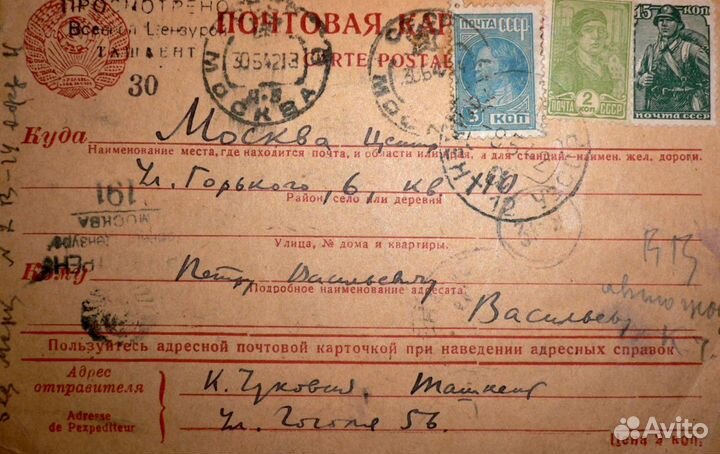 ПРОСМОТРЕНО
Военной Цензурой
ТАШКЕНТ
30
ПОЧТОВАЯ КАР
CARTE POSTAL
МОСКВА 30 6 42 18
МОСКВА
ПОЧТА СССР
5 КОП
ПОЧТА 2 СССР
КОП
15 КОП
ПОЧТА СССР
Куда Москва
Наименование места, где находится почта, и области или края, а для станций наимен. жел. дороги.
Ул. Горького, 6, кв.
Район, село или деревня
191
МОСКВА
Улица, № дома и квартиры.
Кому Петру Васильевичу
Подробное наименование адресата.
Васильеву
Пользуйтесь адресной почтовой карточкой при наведении адресных справок
Адрес отправителя
К. Чуковский, Ташкент
Adresse de l'expediteur
Ул. Гоголя 56.
Цена 2 коп.
Avito